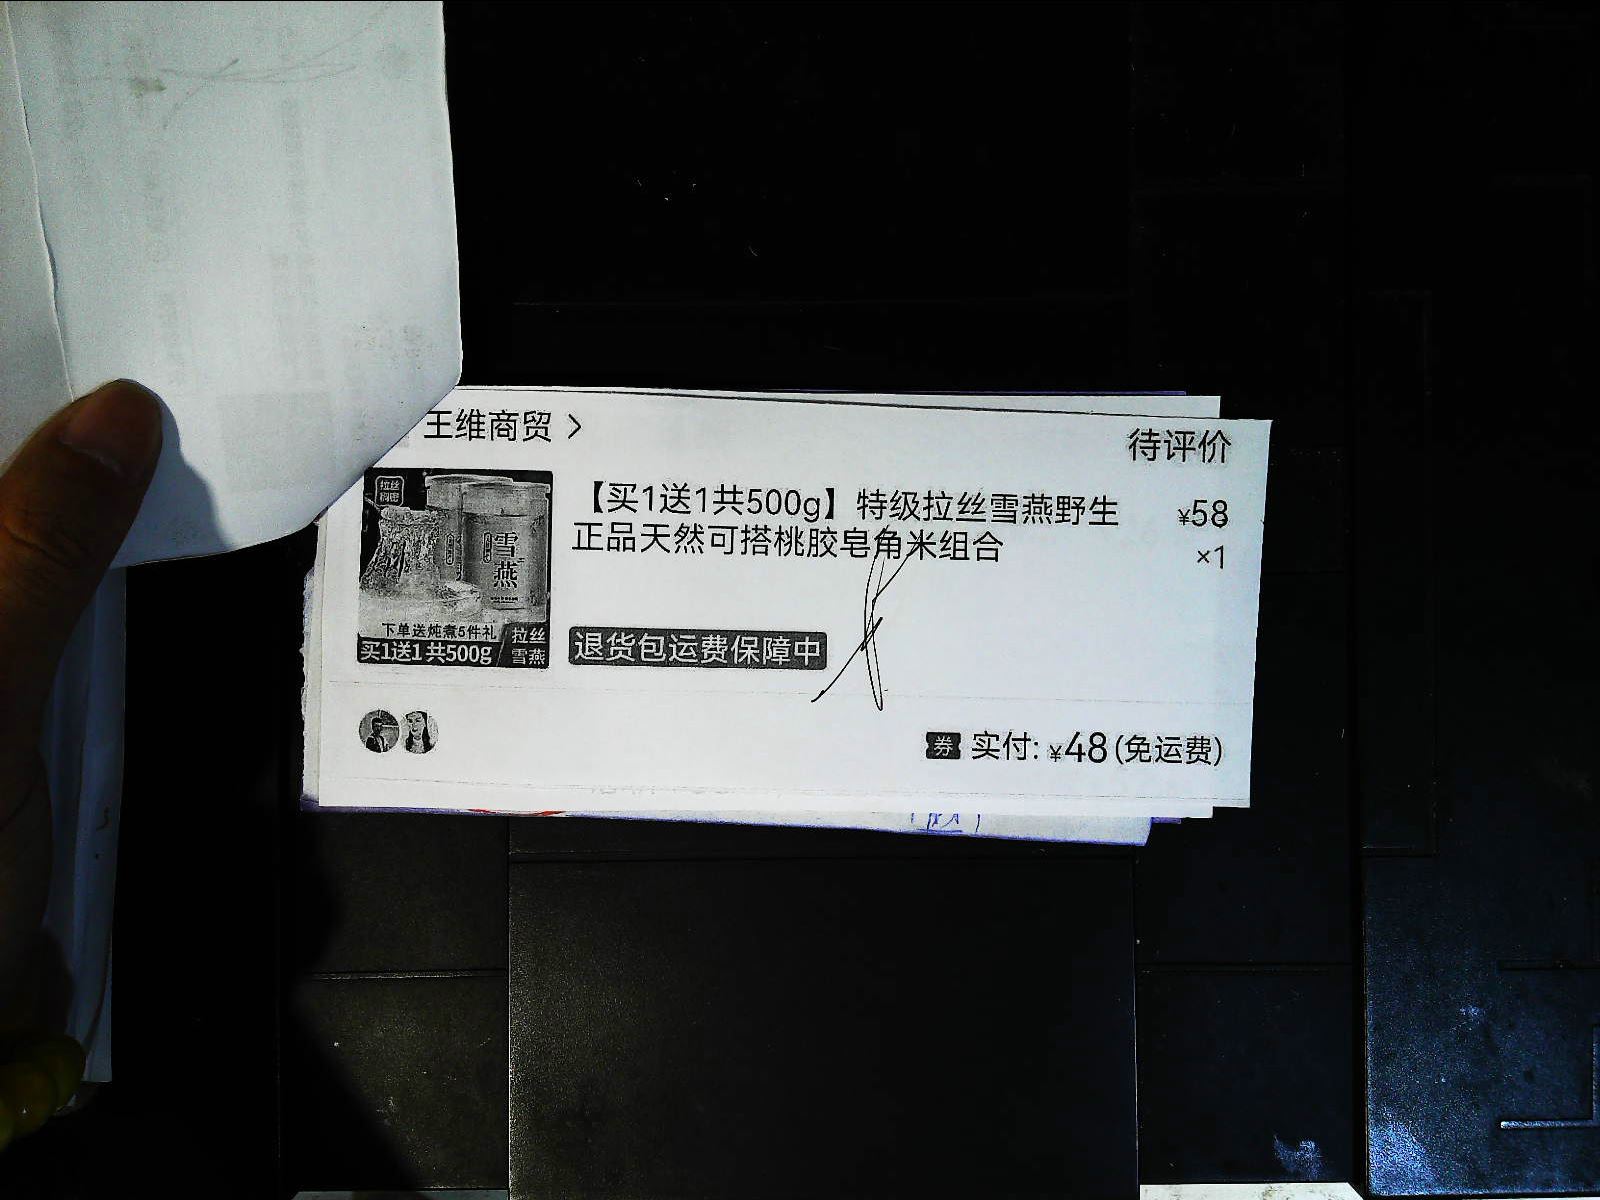 王维商贸 >
待评价
【买1送1共500g】特级拉丝雪燕野生 ¥58
正品天然可搭桃胶皂角米组合 ×1
拉丝
雪燕
下单送炖煮5件礼
买1送1共500g
拉丝
雪燕
退货包运费保障中
券 实付: ¥48(免运费)